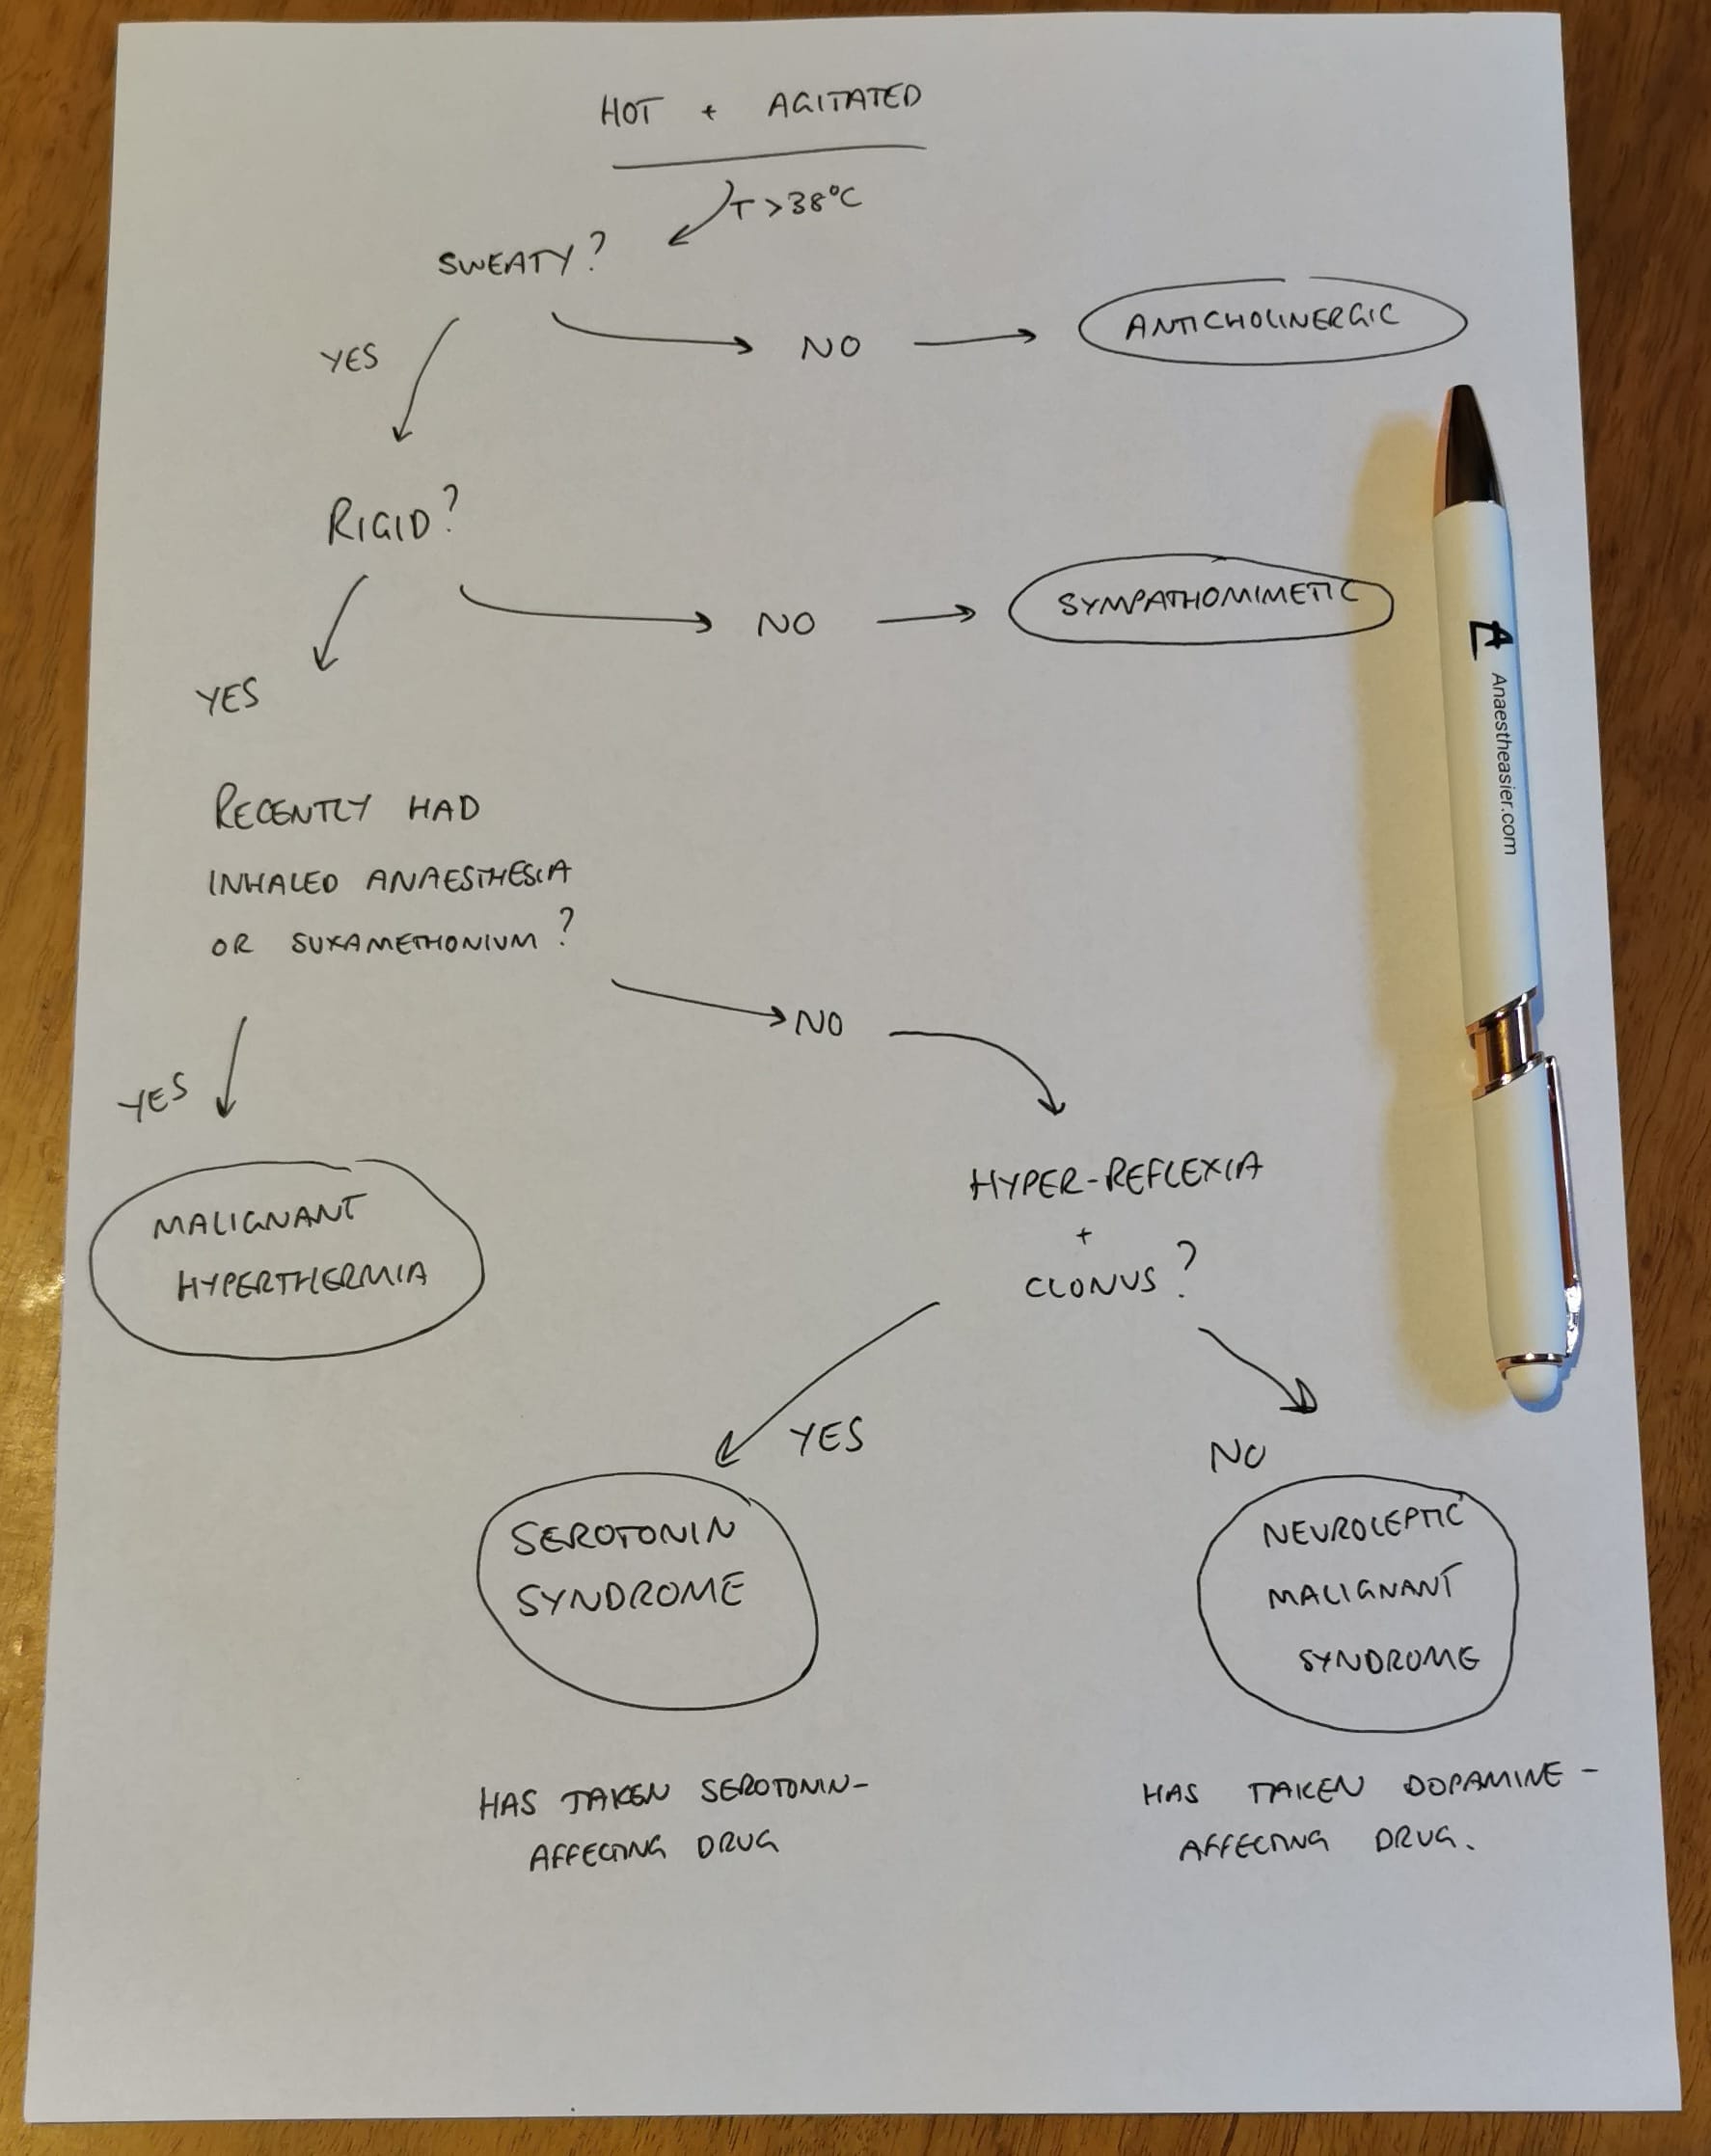 HOT + AGITATED
T>38°C
SWEATY?
YES
NO
ANTICHOLINERGIC
RIGID?
NO
SYMPATHOMIMETIC
YES
RECENTLY HAD
INHALED ANAESTHESIA
OR SUXAMETHONIUM?
NO
YES
MALIGNANT
HYPERTHERMIA
HYPER-REFLEXIA
+
CLONUS?
YES
NO
SEROTONIN
SYNDROME
NEUROLEPTIC
MALIGNANT
SYNDROME
HAS TAKEN SEROTONIN-
AFFECTING DRUG
HAS TAKEN DOPAMINE-
AFFECTING DRUG.
Anaestheasier.com